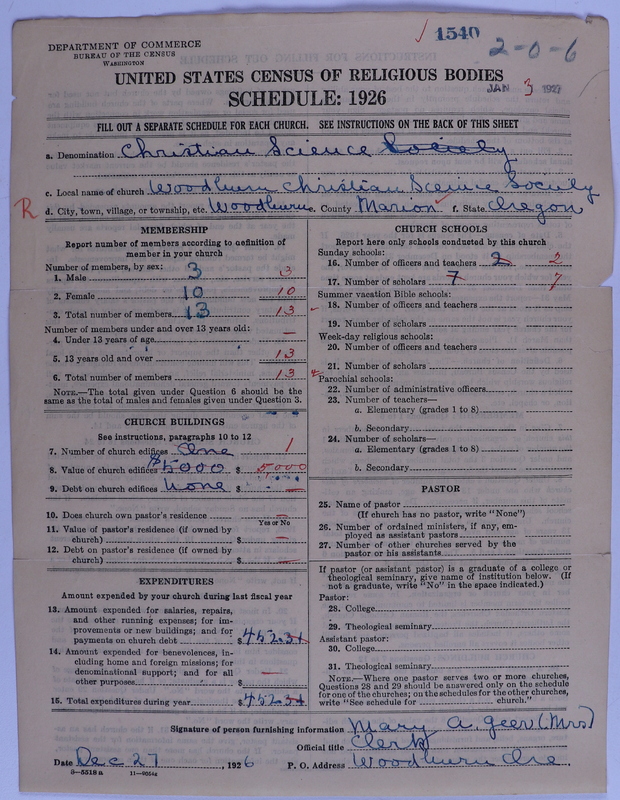 1540
2-0-6
DEPARTMENT OF COMMERCE
BUREAU OF THE CENSUS
WASHINGTON
UNITED STATES CENSUS OF RELIGIOUS BODIES
JAN 3 1927
SCHEDULE: 1926
FILL OUT A SEPARATE SCHEDULE FOR EACH CHURCH. SEE INSTRUCTIONS ON THE BACK OF THIS SHEET
a. Denomination Christian Science Society
c. Local name of church Woodburn Christian Science Society
R d. City, town, village, or township, etc. Woodburn e. County Marion f. State Oregon
MEMBERSHIP
Report number of members according to definition of
member in your church
Number of members, by sex:
1. Male 3 3
2. Female 10 10
3. Total number of members 13 13
Number of members under and over 13 years old:
4. Under 13 years of age —
5. 13 years old and over 13
6. Total number of members 13
NOTE.—The total given under Question 6 should be the
same as the total of males and females given under Question 3.
CHURCH BUILDINGS
See instructions, paragraphs 10 to 12
7. Number of church edifices One 1
8. Value of church edifices $5000 $ 5,000
9. Debt on church edifices None $ —
10. Does church own pastor's residence —
Yes or No
11. Value of pastor's residence (if owned by
church) $ —
12. Debt on pastor's residence (if owned by
church) $ —
EXPENDITURES
Amount expended by your church during last fiscal year
13. Amount expended for salaries, repairs,
and other running expenses; for im-
provements or new buildings; and for
payments on church debt $ 452.34
14. Amount expended for benevolences, in-
cluding home and foreign missions; for
denominational support; and for all
other purposes $ —
15. Total expenditures during year $ 452.34
CHURCH SCHOOLS
Report here only schools conducted by this church
Sunday schools:
16. Number of officers and teachers 2 2
17. Number of scholars 7 7
Summer vacation Bible schools:
18. Number of officers and teachers
19. Number of scholars
Week-day religious schools:
20. Number of officers and teachers
21. Number of scholars
Parochial schools:
22. Number of administrative officers
23. Number of teachers—
a. Elementary (grades 1 to 8)
b. Secondary
24. Number of scholars—
a. Elementary (grades 1 to 8)
b. Secondary
PASTOR
25. Name of pastor
(If church has no pastor, write "None")
26. Number of ordained ministers, if any, em-
ployed as assistant pastors
27. Number of other churches served by the
pastor or his assistants
If pastor (or assistant pastor) is a graduate of a college or
theological seminary, give name of institution below. (If
not a graduate, write "No" in the space indicated.)
Pastor:
28. College
29. Theological seminary
Assistant pastor:
30. College
31. Theological seminary
NOTE.—Where one pastor serves two or more churches,
Questions 28 and 29 should be answered only on the schedule
for one of the churches; on the schedules for the other churches,
write "See schedule for church."
Signature of person furnishing information Mary A. Geer (Mrs)
Official title Clerk
Date Dec 27, 1926 P. O. Address Woodburn Ore.
8-5518a 11-9054a